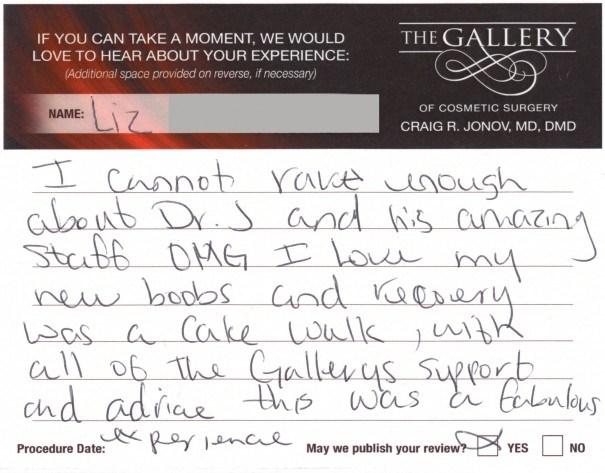 IF YOU CAN TAKE A MOMENT, WE WOULD
LOVE TO HEAR ABOUT YOUR EXPERIENCE:
(Additional space provided on reverse, if necessary)
NAME: Liz
THE GALLERY
OF COSMETIC SURGERY
CRAIG R. JONOV, MD, DMD
I cannot rave enough
about Dr. J and his amazing
Staff OMG I love my
new boobs and recovery
was a cake walk, with
all of the Gallerys support
and advice this was a fabulous
experience
Procedure Date:
May we publish your review? YES NO